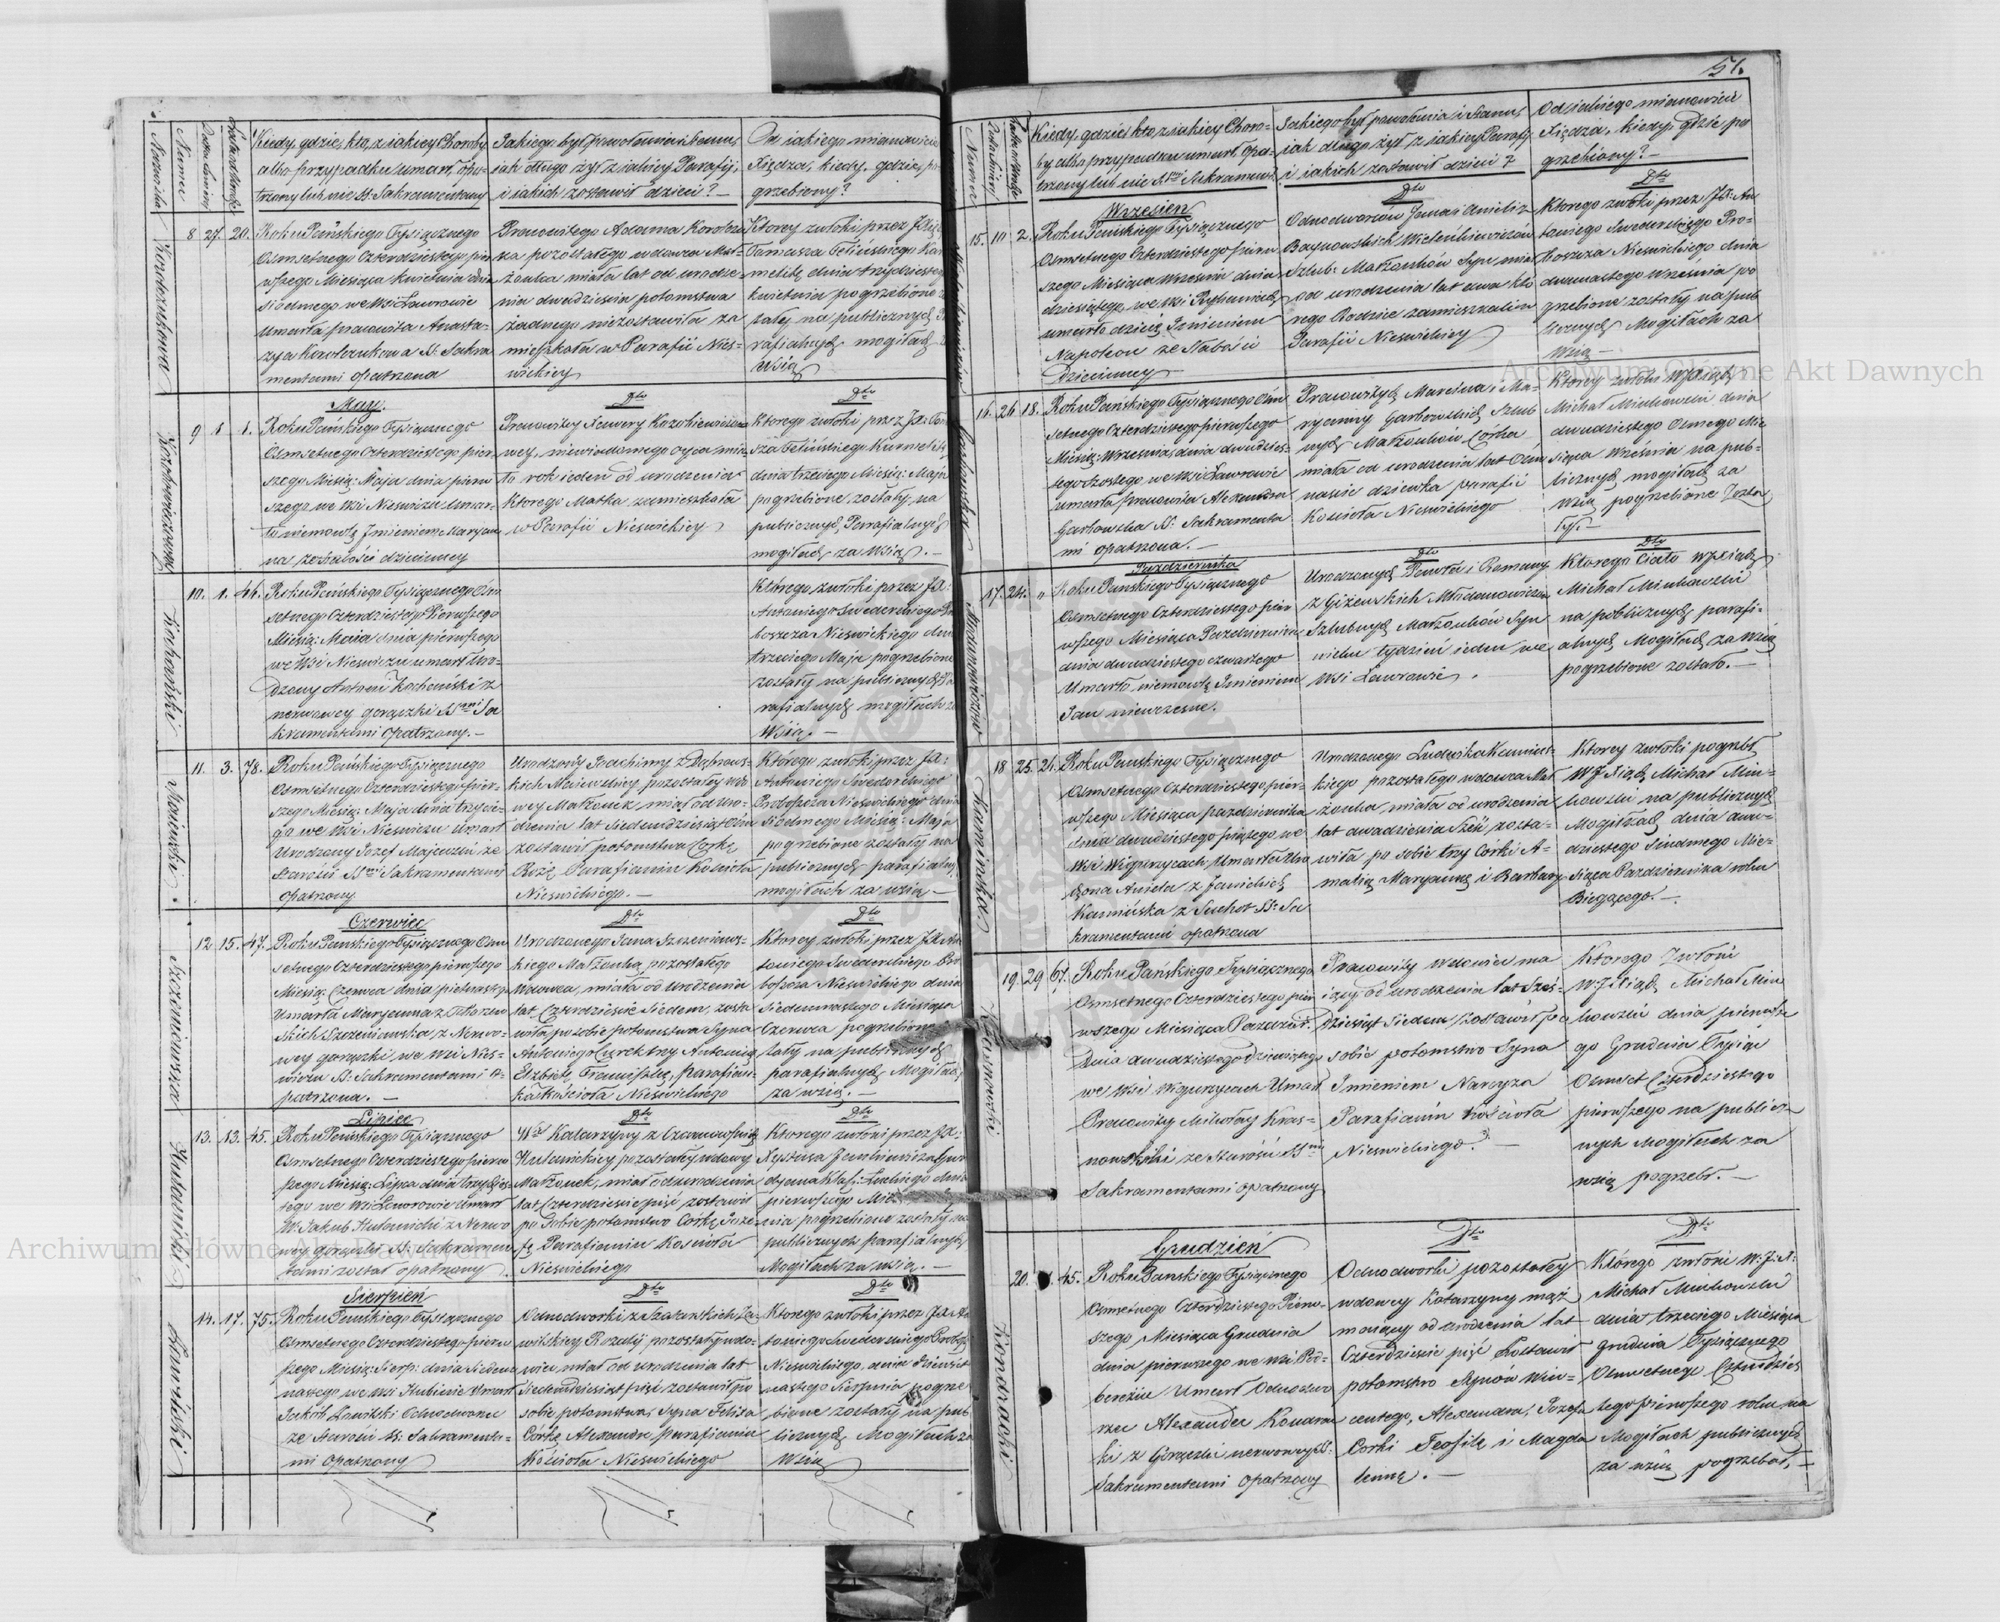 57.
Nazwiska
Numer
Data śmierci
Lata wieku
Kiedy, gdzie, kto, z iakiey Choroby
albo przypadku umarł, opa-
trzony lub nie SS. Sakramentami
Jakiego był powołania i stanu,
iak długo żył z iakiey Parafii,
i iakich zostawił dzieci? —
Xiędza, kiedy, gdzie, po
grzebiony?
8 27. 20. Roku Pańskiego Tysiącznego
Osmsetnego Czterdziestego pier
wszego Miesiąca Kwietnia dnia
siodmego we Wsi Ławrowie
Umarła pracowita Anasta-
zya Korolczukowa SS. Sakra
mentami opatrzona
Pracowitego Adama Korolczu
ka pozostałego wdowca Mał-
żonka miała lat od urodze-
nia dwadzieścia potomstwa
żadnego niezostawiła za
mieszkała w Parafii Nies-
wickiey
Ktorey zwłoki przez JX:
Tomasza Felińskiego Kar
melitę dnia trzydziestego
Kwietnia pogrzebione zo
stały na publicznych Pa
rafialnych mogiłach za
Wsią
Korolczukowa
May.
9 1. 1. Roku Pańskiego Tysiącznego
Osmsetnego Czterdziestego pier
szego Miesią: Maja dnia pierw
szego we Wsi Nieswiczu umar
ło niemowlę Imieniem Maryan
na zesłabości dziecinney
Dto
wey, niewiadomego oyca mia-
ło rok ieden od urodzenia
ktorego Matka zamieszkała
w Parafii Nieswickiey
Dto
Ktorego zwłoki przez JX: Tom
sza Felińskiego Karmelitę
dnia trzeciego Miesią: Maja
pogrzebione zostały na
publicznych Parafialnych
mogiłach za Wsią. —
10. 1. 46. Roku Pańskiego Tysiącznego Ośm
setnego Czterdziestego Pierwszego
Miesią: Maia dnia pierwszego
we Wsi Nieswiczu umarł Uro-
dzony Antoni Kochański z
nerwowey gorączki SSmi Sa
kramentami opatrzony. —
Którego zwłoki przez JX:
Antoniego Swederskiego Pro
boszcza Nieswickiego dnia
trzeciego Maja pogrzebione
zostały na publicznych Pa
rafialnych mogiłach za
Wsią. —
Kochański
11. 3. 78. Roku Pańskiego Tysiącznego
Osmsetnego Czterdziestego pier-
szego Miesią: Maja dnia trzecie
go we Wsi Nieswiczu Umarł
Urodzony Jozef Majewski ze
starości SSmi Sakramentami
opatrzony
Urodzoney Joachimy z Dąbrows-
kich Majewskiey pozostałey wdo
wey Małżonek, miał od uro-
dzenia lat Siedemdziesiąt Ośm
zostawił potomstwa Corkę
Rożę Parafianin Kościoła
Nieswickiego. —
Którego zwłoki przez JX:
Antoniego Swederskiego
Proboszcza Nieswickiego dnia
Siodmego Miesią: Maja
pogrzebione zostały na
publicznych parafialnych
mogiłach za wsią —
Majewski
Czerwiec
12 15. 47. Roku Pańskiego Tysiącznego Osm
setnego Czterdziestego pierwszego
Miesią: Czerwca dnia piętnastego
Umarła Maryanna z
skich Szczeniowska, z Nerwo-
wey gorączki we Wsi Nies-
wiczu SS. Sakramentami o-
patrzona. —
Dto
Urodzonego Jana Szczeniows-
kiego Małżonka pozostałego
Wdowca, miała od urodzenia
lat Czterdzieście Siedem, zosta
wiła po sobie potomstwa Syna
Antoniego Corek trzy Antoninę
Elżbietę Franciszkę, parafian-
ka Kościoła Nieswickiego
Dto
Ktorey zwłoki przez JX: An
toniego Swederskiego Pro
boszcza Nieswickiego dnia
Siedemnastego Miesiąca
Czerwca pogrzebione zo
stały na publicznych
parafialnych Mogiłach
za wsią. —
Szczeniowska
Lipiec
13. 13. 45. Roku Pańskiego Tysiącznego
Osmsetnego Czterdziestego pierw
szego Miesią: Lipca dnia trzynas
tego we Wsi Ławrowie Umarł
W. Jakub Hulanicki z Nerwo
wey gorączki SS. Sakramen
tami został opatrzony
Dto
Wey Katarzyny z
Hulanickiey pozostałey wdowy
Małżonek, miał od urodzenia
lat Czterdzieście pięć zostawił
po Sobie potomstwo Corkę Joze
fę Parafianin Kościoła
Nieswickiego
Dto
Ktorego zwłoki przez JX:
pogrzebione zostały na
publicznych parafialnych
Mogiłach za wsią. —
Hulanicki
Sierpień
14. 17. 75. Roku Pańskiego Tysiącznego
Osmsetnego Czterdziestego pierw
szego Miesią: Sierp: dnia Siedem
nastego we wsi Hubinie Umarł
Jakób Ławiński Odnodworzec
ze starości SS. Sakramenta-
mi opatrzony
Dto
Odnodworki z Szatańskich Ła
wińskiey Rozalij pozostałey wdo
wiec, miał od urodzenia lat
Siedemdziesiąt pięć zostawił po
sobie potomstwa, Syna Felixa
Córkę Alexandrę, parafianin
Kościoła Nieswickiego
Dto
Ktorego zwłoki przez JX: An
toniego Swederskiego Probosz
Nieswickiego, dnia dziewięt
nastego Sierpnia pogrze
bione zostały na pub
licznych Mogiłach za
Wsią
Ławiński
Numer
Kiedy, gdzie, kto, z iakiey Choro-
by albo przypadku umarł, opa-
trzony lub nie SSmi Sakramen
Jakiego był powołania i stanu,
iak długo żył z iakiey Parafij
i iakich zostawił dzieci?
Od iakiego mianowicie
Xiędza, kiedy, gdzie po
grzebiony? —
Wrzesień
15. 10 2. Roku Pańskiego Tysiącznego
Osmsetnego Czterdziestego pierw
szego Miesiąca Września dnia
dziesiątego, we Wsi
umarło dziecię Imieniem
Napoleon ze słabości
Dziecinney
Dto
Odnodworców Tomasza i Anieli z
Szlub: Małżonków Syn miał
od urodzenia lat dwa kto
rego Rodzice zamieszkali w
Parafii Nieswickiey
Dto
Ktorego zwłoki przez JX: An
toniego Swederskiego Pro-
boszcza Nieswickiego dnia
dwunastego Września po
grzebione zostały na pub
licznych Mogiłach za
Wsią —
16. 26 18. Roku Pańskiego Tysiącznego Ośm
setnego Czterdziestego pierwszego
Miesią: Września, dnia dwudzies-
tego szostego we Wsi Ławrowie
umarła pracowita Alexandra
Garbowska SS. Sakramenta
mi opatrzona. —
Pracowitych Marcina i Ma-
ryanny Garbowskich Szlub
nych Małżonków Córka
miała od urodzenia lat Ośm
naście dziewka parafii
Kościoła Nieswickiego
Ktorey zwłoki W JXiądz
Michał Minkowski dnia
dwudziestego Osmego Mie
siąca Września na pub-
licznych mogiłach za
Wsią pogrzebione Zosta
ły. —
Października
17. 24. „ Roku Pańskiego Tysiącznego
Osmsetnego Czterdziestego pier
wszego Miesiąca Października
dnia dwudziestego czwartego
Umarło niemowlę Imieniem
Jan niewczesne.
Dto
Urodzonych Pawła i Romany
z Giżewskich Młodanowiczów
Szlubnych Małżonków Syn
wieku tydzień ieden we
Wsi Ławrowie.
Dto
Ktorego Ciało W JXiądz
Michał Minkowski
na publicznych parafi-
alnych Mogiłach za Wsią
pogrzebione zostało. —
18 25. 26. Roku Pańskiego Tysiącznego
Osmsetnego Czterdziestego pier-
wszego Miesiąca października
dnia dwudziestego piątego we
Wsi Wiguryczach, Umarła Uro
dzona Aniela z Janickich
Kamińska z Suchot SS: Sa
kramentami opatrzona
Urodzonego Ludwika Kamińs-
kiego pozostałego wdowca Mał
żonka, miała od urodzenia
lat dwadzieścia Sześć zosta-
wiła po sobie trzy Córki A-
malię Maryannę i Barbarę
Ktorey zwłoki pogrzebł
W JXiądz Michał Min-
kowski na publicznych
Mogiłach dnia dwu-
dziestego Siodmego Mie-
siąca Października roku
Biegącego. —
Kamińska
19. 29 67. Roku Pańskiego Tysiącznego
Osmsetnego Czterdziestego pier
wszego Miesiąca Paźdz:
Dnia dwudziestego dziewiątego
we Wsi Wiguryczach Umarł
Pracowity Mikołay Kras-
nowolski ze Starości SSmi
Sakramentami opatrzony
Pracowity wdowiec ma
iący od urodzenia lat Sześ-
dziesiąt Siedem Zostawił po
sobie potomstwo Syna
Imieniem Narcyza
Parafianin Kościoła
Nieswickiego. —
Ktorego Zwłoki
W JXiądz Michał Min
kowski dnia pierwsze
go Grudnia Tysiąc
Osmset Czterdziestego
pierwszego na publicz-
nych Mogiłach za
wsią pogrzebł. —
Grudzień
20. 1. 45. Roku Pańskiego Tysiącznego
Osmsetnego Czterdziestego Pierw-
szego Miesiąca Grudnia
dnia pierwszego we wsi Pod-
bereziu Umarł Odnodwo
rzec Alexander Konarze
ki z Gorączki nerwowey SS:
Sakramentami opatrzony
Dto
Odnodworki pozostałey
wdowey Katarzyny mąż
maiący od urodzenia lat
Czterdzieście pięć Zostawił
potomstwo Synów Win-
centego, Alexandra, Jozefa
Corki Teofilę i Magda
lennę. —
Dto
Którego zwłoki W: J: X:
Michał Minkowski
dnia trzeciego Miesiąca
Grudnia Tysiącznego
Osmsetnego Czterdzies
tego pierwszego roku na
Mogiłach publicznych
za wsią pogrzebał. —
Archiwum Główne Akt Dawnych
Archiwum Główne Akt Dawnych